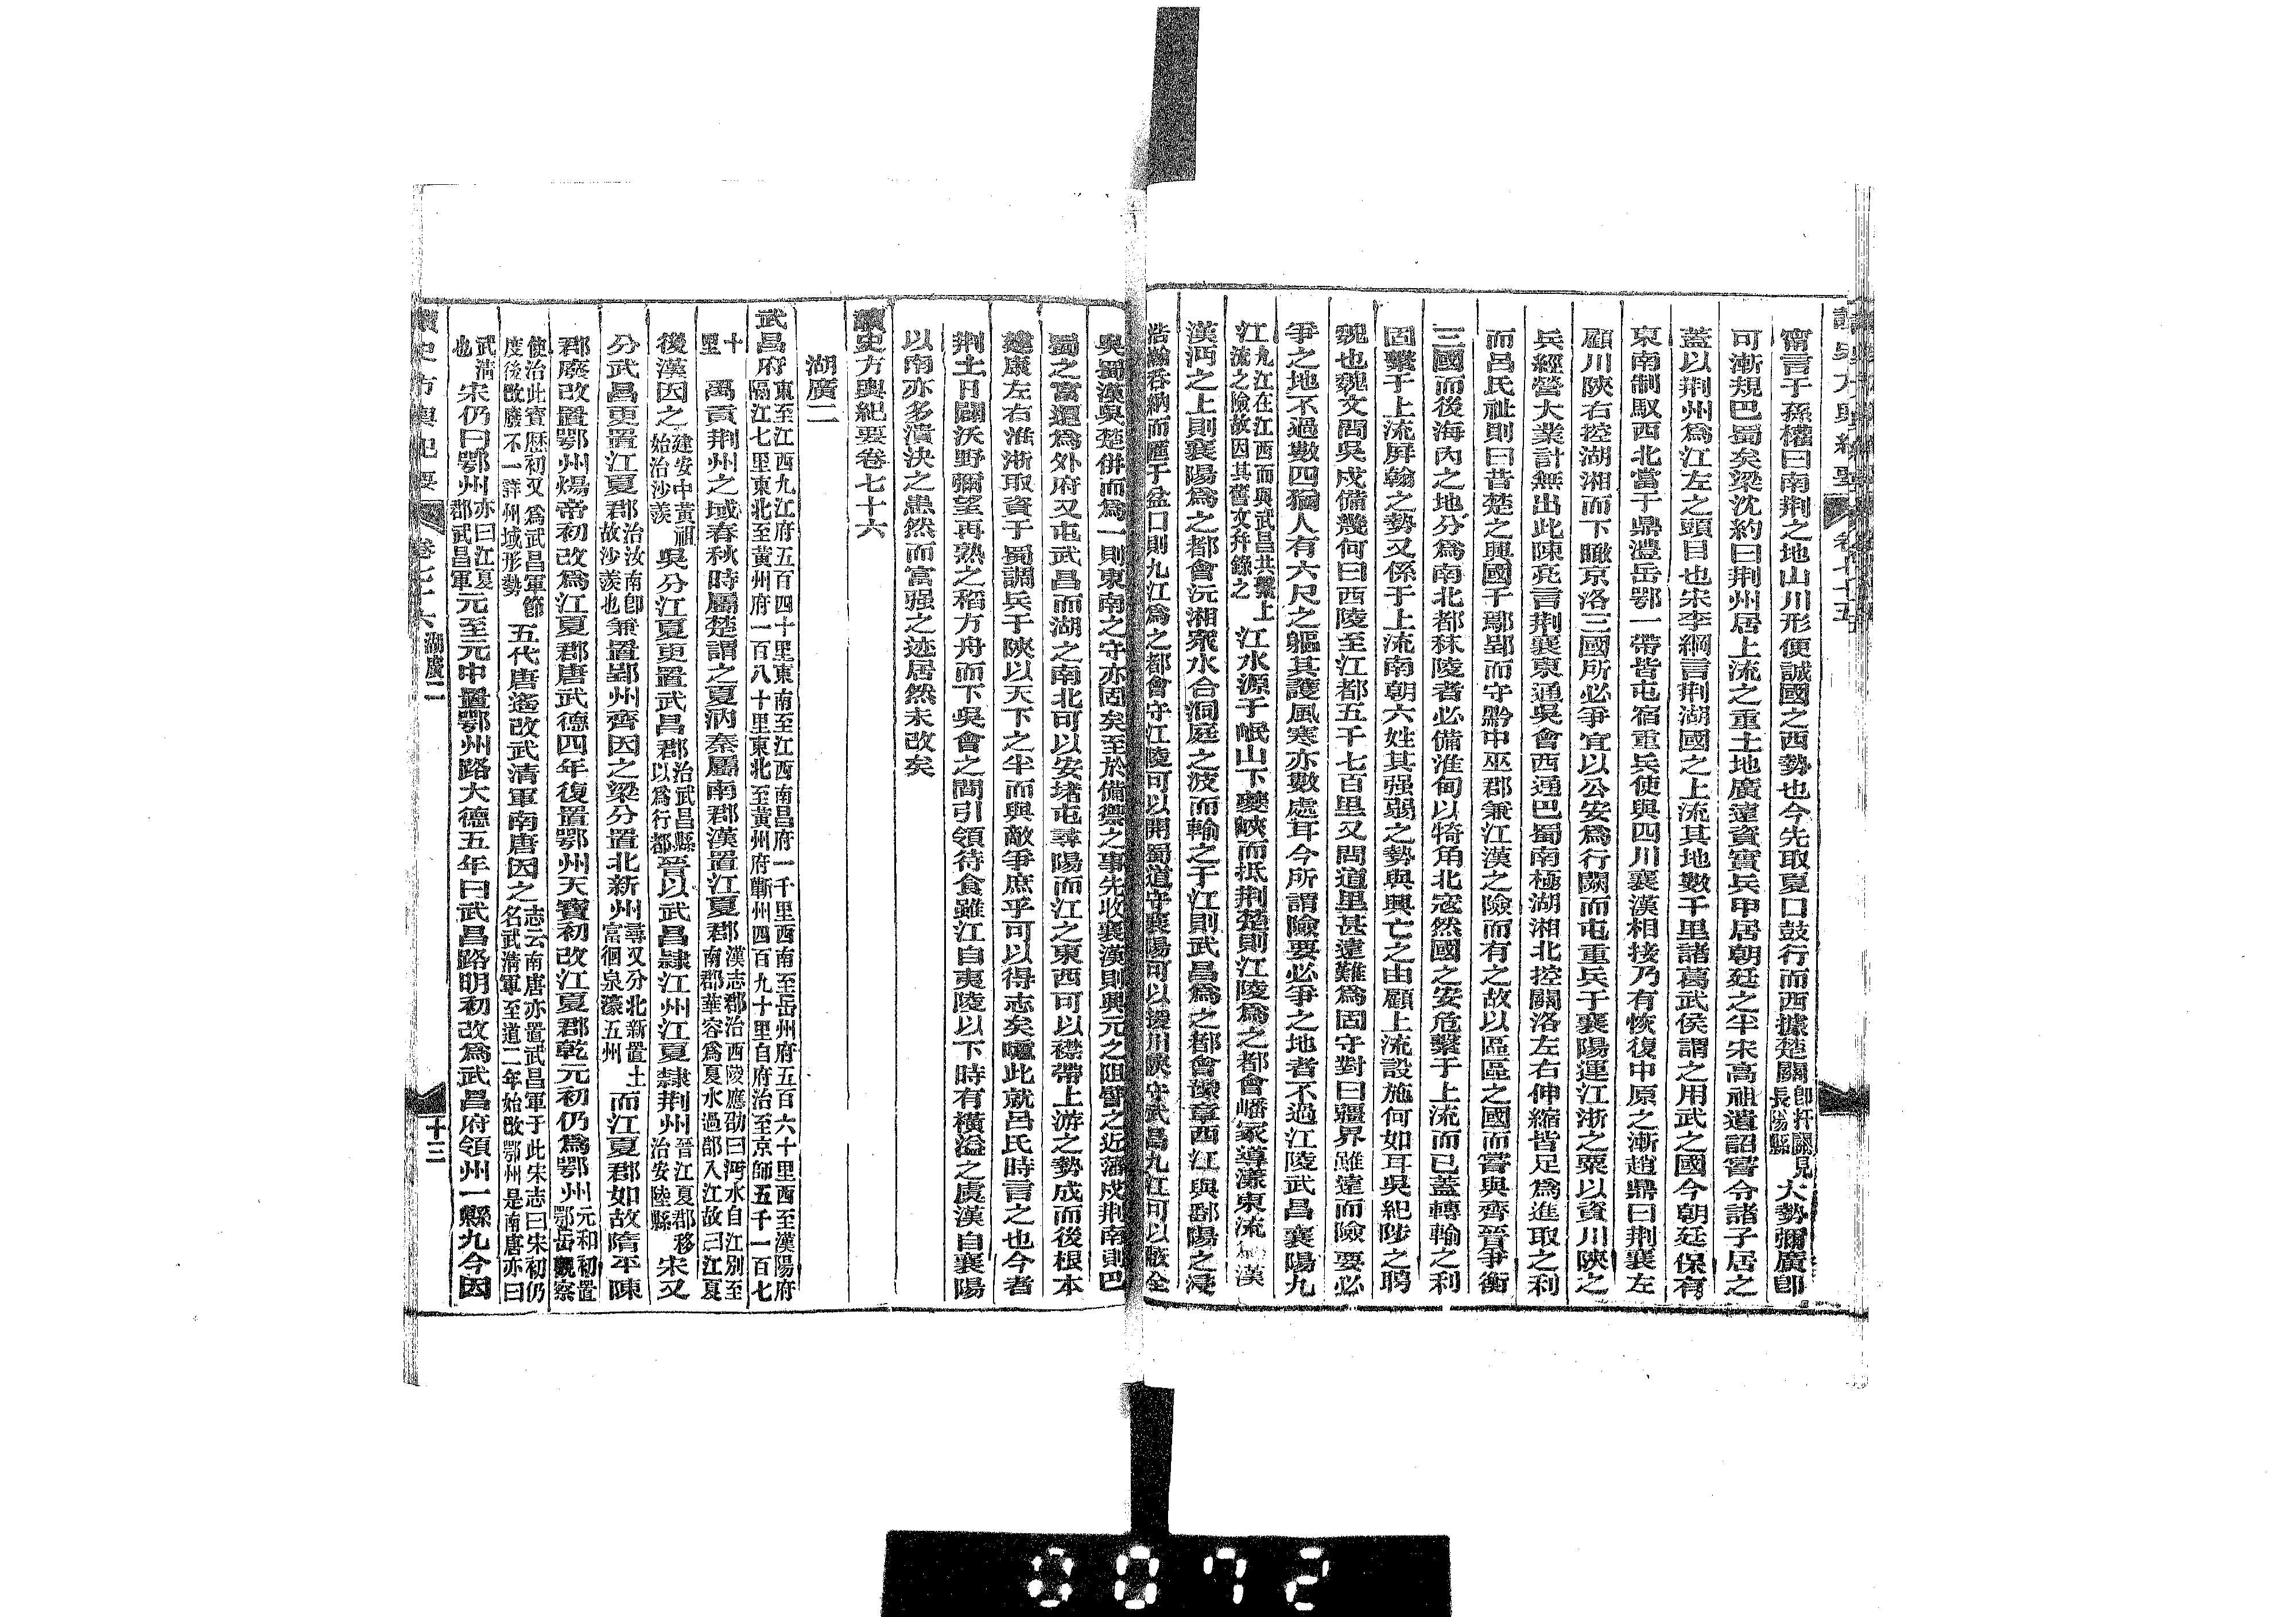 讀史方輿紀要 卷七十五
甯言于孫權曰南荆之地山川形便誠國之西勢也今先取夏口鼓行而西據楚關卽扞關見長陽縣大勢彌廣卽
可漸規巴蜀矣梁沈約曰荆州居上流之重土地廣遠資實兵甲居朝廷之半宋高祖遺詔嘗令諸子居之
蓋以荆州爲江左之頭目也宋李綱言荆湖國之上流其地數千里諸葛武侯謂之用武之國今朝廷保有
東南制馭西北當于鼎澧岳鄂一帶皆屯宿重兵使與四川襄漢相接乃有恢復中原之漸趙鼎曰荆襄左
顧川陝右控湖湘而下瞰京洛三國所必爭宜以公安爲行闕而屯重兵于襄陽運江浙之粟以資川陝之
兵經營大業計無出此陳亮言荆襄東通吳會西通巴蜀南極湖湘北控關洛左右伸縮皆足爲進取之利
而呂氏祉則曰昔楚之興國于鄢郢而守黔中巫郡兼江漢之險而有之故以區區之國而嘗與齊晉爭衡
三國而後海內之地分爲南北都秣陵者必備淮甸以犄角北寇然國之安危繫于上流而已蓋轉輸之利
固繫于上流屏翰之勢又係于上流南朝六姓其强弱之勢與興亡之由顧上流設施何如耳吳紀陟之聘
魏也魏文問吳戍備幾何曰西陵至江都五千七百里又問道里甚遠難爲固守對曰疆界雖遠而險要必
爭之地不過數四猶人有六尺之軀其護風寒亦數處耳今所謂險要必爭之地者不過江陵武昌襄陽九
江九江在江西而與武昌共繫上流之險故因其舊文幷錄之江水源于岷山下夔峽而抵荆楚則江陵爲之都會嶓冢導漾東流 漢
漢沔之上則襄陽爲之都會沅湘衆水合洞庭之波而輸之于江則武昌爲之都會豫章西江與鄱陽之浸
浩瀚吞納而匯于湓口則九江爲之都會守江陵可以開蜀道守襄陽可以援川陝守武昌九江可以蔽全
吳蜀漢吳楚併而爲一則東南之守亦固矣至於備禦之事先收襄漢則興元之阻譬之近藩戍荆南則巴
蜀之富還爲外府又屯武昌而湖之南北可以安堵屯尋陽而江之東西可以襟帶上游之勢成而後根本
建康左右淮浙取資于蜀調兵于陝以天下之半而與敵爭庶乎可以得志矣嘑此就呂氏時言之也今者
荆土日闢沃野彌望再熟之稻方舟而下吳會之間引領待食雖江自夷陵以下時有橫溢之虞漢自襄陽
以南亦多潰決之患然而富强之迹居然未改矣
讀史方輿紀要卷七十六
湖廣二
武昌府東至江西九江府五百四十里東南至江西南昌府一千里西南至岳州府五百六十里西至漢陽府隔江七里東北至黃州府一百八十里東北至黃州府蘄州四百九十里自府治至京師五千一百七
十里禹貢荆州之域春秋時屬楚謂之夏汭秦屬南郡漢置江夏郡漢志郡治西陵應劭曰沔水自江別至南郡華容爲夏水過郡入江故曰江夏
後漢因之建安中黃祖始治沙羨吳分江夏更置武昌郡治武昌縣以爲行都晉以武昌隸江州江夏隸荆州晉江夏郡移治安陸縣宋又
分武昌更置江夏郡治汝南卽故沙羨也兼置郢州齊因之梁分置北新州尋又分北新置土富徊泉濠五州而江夏郡如故隋平陳
郡廢改置鄂州煬帝初改爲江夏郡唐武德四年復置鄂州天寶初改江夏郡乾元初仍爲鄂州元和初置鄂岳觀察
使治此寶歷初又爲武昌軍節度後改廢不一詳州域形勢五代唐遙改武清軍南唐因之志云南唐亦置武昌軍于此宋志曰宋初仍名武清軍至道二年始改鄂州是南唐亦曰
武清也宋仍曰鄂州亦曰江夏郡武昌軍元至元中置鄂州路大德五年曰武昌路明初改爲武昌府領州一縣九今因
讀史方輿紀要 卷七十六 湖廣二 十三
0072